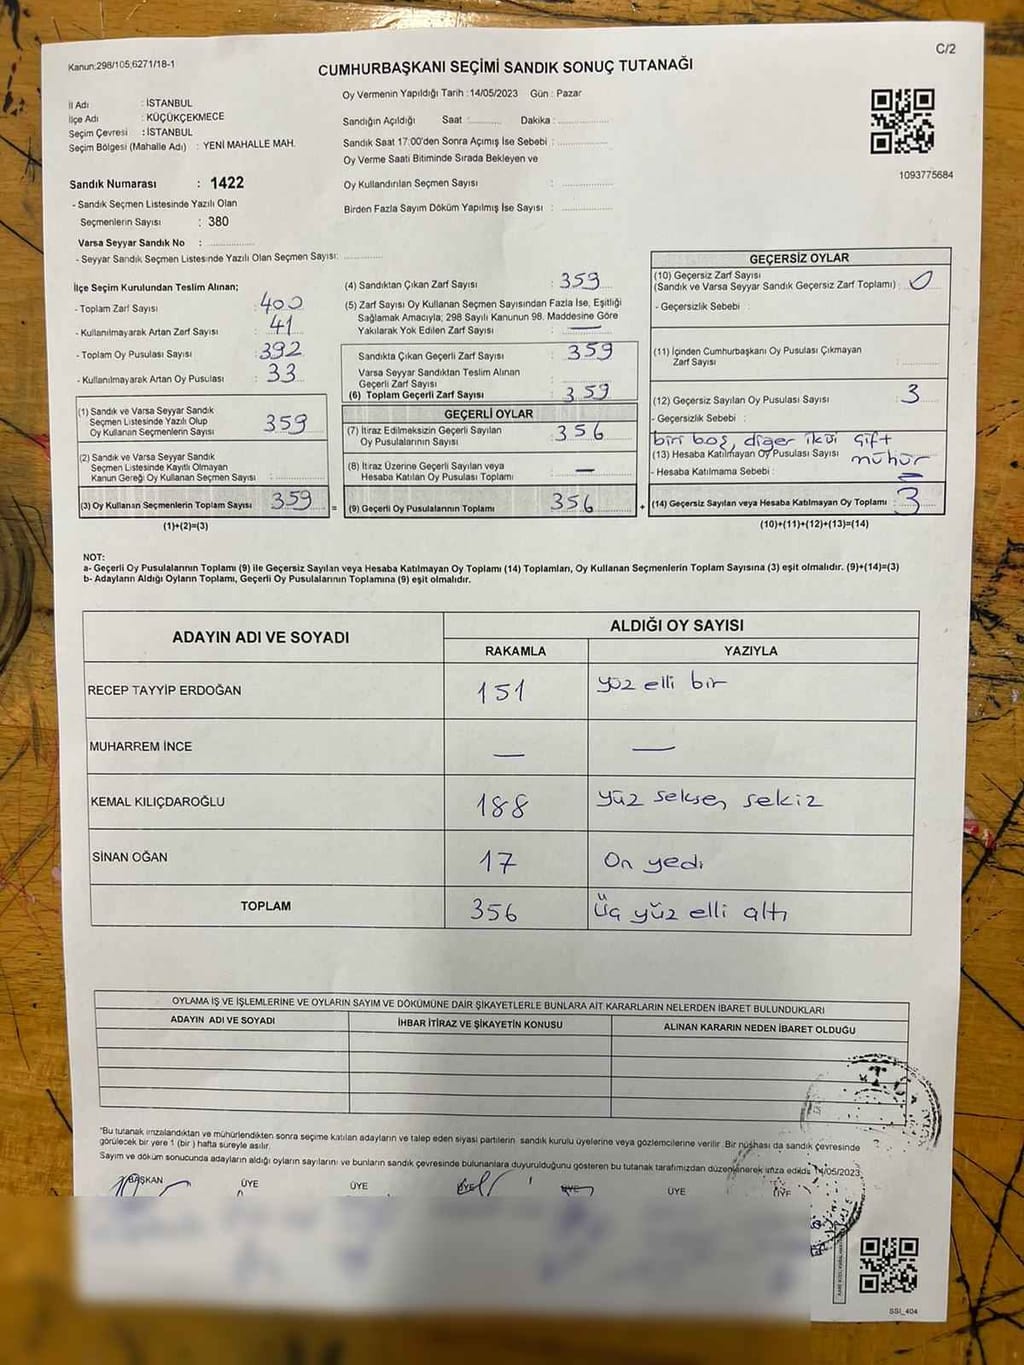 C/2
Kanun:298/105;6271/18-1
CUMHURBAŞKANI SEÇİMİ SANDIK SONUÇ TUTANAĞI
İl Adı : İSTANBUL
İlçe Adı : KÜÇÜKÇEKMECE
Seçim Çevresi : İSTANBUL
Seçim Bölgesi (Mahalle Adı) : YENİ MAHALLE MAH.
Sandık Numarası : 1422
- Sandık Seçmen Listesinde Yazılı Olan
Seçmenlerin Sayısı : 380
Varsa Seyyar Sandık No : ..............
- Seyyar Sandık Seçmen Listesinde Yazılı Olan Seçmen Sayısı: ............
Oy Vermenin Yapıldığı Tarih :14/05/2023 Gün : Pazar
Sandığın Açıldığı Saat :.......... Dakika :................
Sandık Saat 17:00'den Sonra Açımış İse Sebebi : ................
Oy Verme Saati Bitiminde Sırada Bekleyen ve
Oy Kullandırılan Seçmen Sayısı : ................
Birden Fazla Sayım Döküm Yapılmış İse Sayısı : ................
1093775684
İlçe Seçim Kurulundan Teslim Alınan;
- Toplam Zarf Sayısı : 400
- Kullanılmayarak Artan Zarf Sayısı : 41
- Toplam Oy Pusulası Sayısı : 392
- Kullanılmayarak Artan Oy Pusulası : 33
(1) Sandık ve Varsa Seyyar Sandık
Seçmen Listesinde Yazılı Olup
Oy Kullanan Seçmenlerin Sayısı : 359
(2) Sandık ve Varsa Seyyar Sandık
Seçmen Listesinde Kayıtlı Olmayan
Kanun Gereği Oy Kullanan Seçmen Sayısı : ............
(3) Oy Kullanan Seçmenlerin Toplam Sayısı : 359 =
(1)+(2)=(3)
(4) Sandıktan Çıkan Zarf Sayısı : 359
(5) Zarf Sayısı Oy Kullanan Seçmen Sayısından Fazla İse, Eşitliği
Sağlamak Amacıyla; 298 Sayılı Kanunun 98. Maddesine Göre
Yakılarak Yok Edilen Zarf Sayısı : —
Sandıkta Çıkan Geçerli Zarf Sayısı : 359
Varsa Seyyar Sandıktan Teslim Alınan
Geçerli Zarf Sayısı : ............
(6) Toplam Geçerli Zarf Sayısı : 359
GEÇERLİ OYLAR
(7) İtiraz Edilmeksizin Geçerli Sayılan
Oy Pusulalarının Sayısı : 356
(8) İtiraz Üzerine Geçerli Sayılan veya
Hesaba Katılan Oy Pusulası Toplamı : —
(9) Geçerli Oy Pusulalarının Toplamı : 356 +
GEÇERSİZ OYLAR
(10) Geçersiz Zarf Sayısı
(Sandık ve Varsa Seyyar Sandık Geçersiz Zarf Toplamı) : 0
- Geçersizlik Sebebi :
(11) İçinden Cumhurbaşkanı Oy Pusulası Çıkmayan
Zarf Sayısı : ............
(12) Geçersiz Sayılan Oy Pusulası Sayısı : 3
- Geçersizlik Sebebi :
biri boş, diğer ikisi çift
(13) Hesaba Katılmayan Oy Pusulası Sayısı mühür
- Hesaba Katılmama Sebebi :
(14) Geçersiz Sayılan veya Hesaba Katılmayan Oy Toplamı : 3
(10)+(11)+(12)+(13)=(14)
NOT:
a- Geçerli Oy Pusulalarının Toplamı (9) ile Geçersiz Sayılan veya Hesaba Katılmayan Oy Toplamı (14) Toplamları, Oy Kullanan Seçmenlerin Toplam Sayısına (3) eşit olmalıdır. (9)+(14)=(3)
b- Adayların Aldığı Oyların Toplamı, Geçerli Oy Pusulalarının Toplamına (9) eşit olmalıdır.
ADAYIN ADI VE SOYADI ALDIĞI OY SAYISI
RAKAMLA YAZIYLA
RECEP TAYYİP ERDOĞAN 151 yüz elli bir
MUHARREM İNCE — —
KEMAL KILIÇDAROĞLU 188 yüz seksen sekiz
SİNAN OĞAN 17 On yedi
TOPLAM 356 Üç yüz elli altı
OYLAMA İŞ VE İŞLEMLERİNE VE OYLARIN SAYIM VE DÖKÜMÜNE DAİR ŞİKAYETLERLE BUNLARA AİT KARARLARIN NELERDEN İBARET BULUNDUKLARI
ADAYIN ADI VE SOYADI İHBAR İTİRAZ VE ŞİKAYETİN KONUSU ALINAN KARARIN NEDEN İBARET OLDUĞU
"Bu tutanak imzalandıktan ve mühürlendikten sonra seçime katılan adayların ve talep eden siyasi partilerin sandık kurulu üyelerine veya gözlemcilerine verilir. Bir nüshası da sandık çevresinde
görülecek bir yere 1 (bir) hafta süreyle asılır.
Sayım ve döküm sonucunda adayların aldığı oyların sayılarını ve bunların sandık çevresinde bulunanlara duyurulduğunu gösteren bu tutanak tarafımızdan düzenlenerek imza edildi. 14/05/2023
BAŞKAN ÜYE ÜYE ÜYE ÜYE ÜYE ÜYE
SSI_404